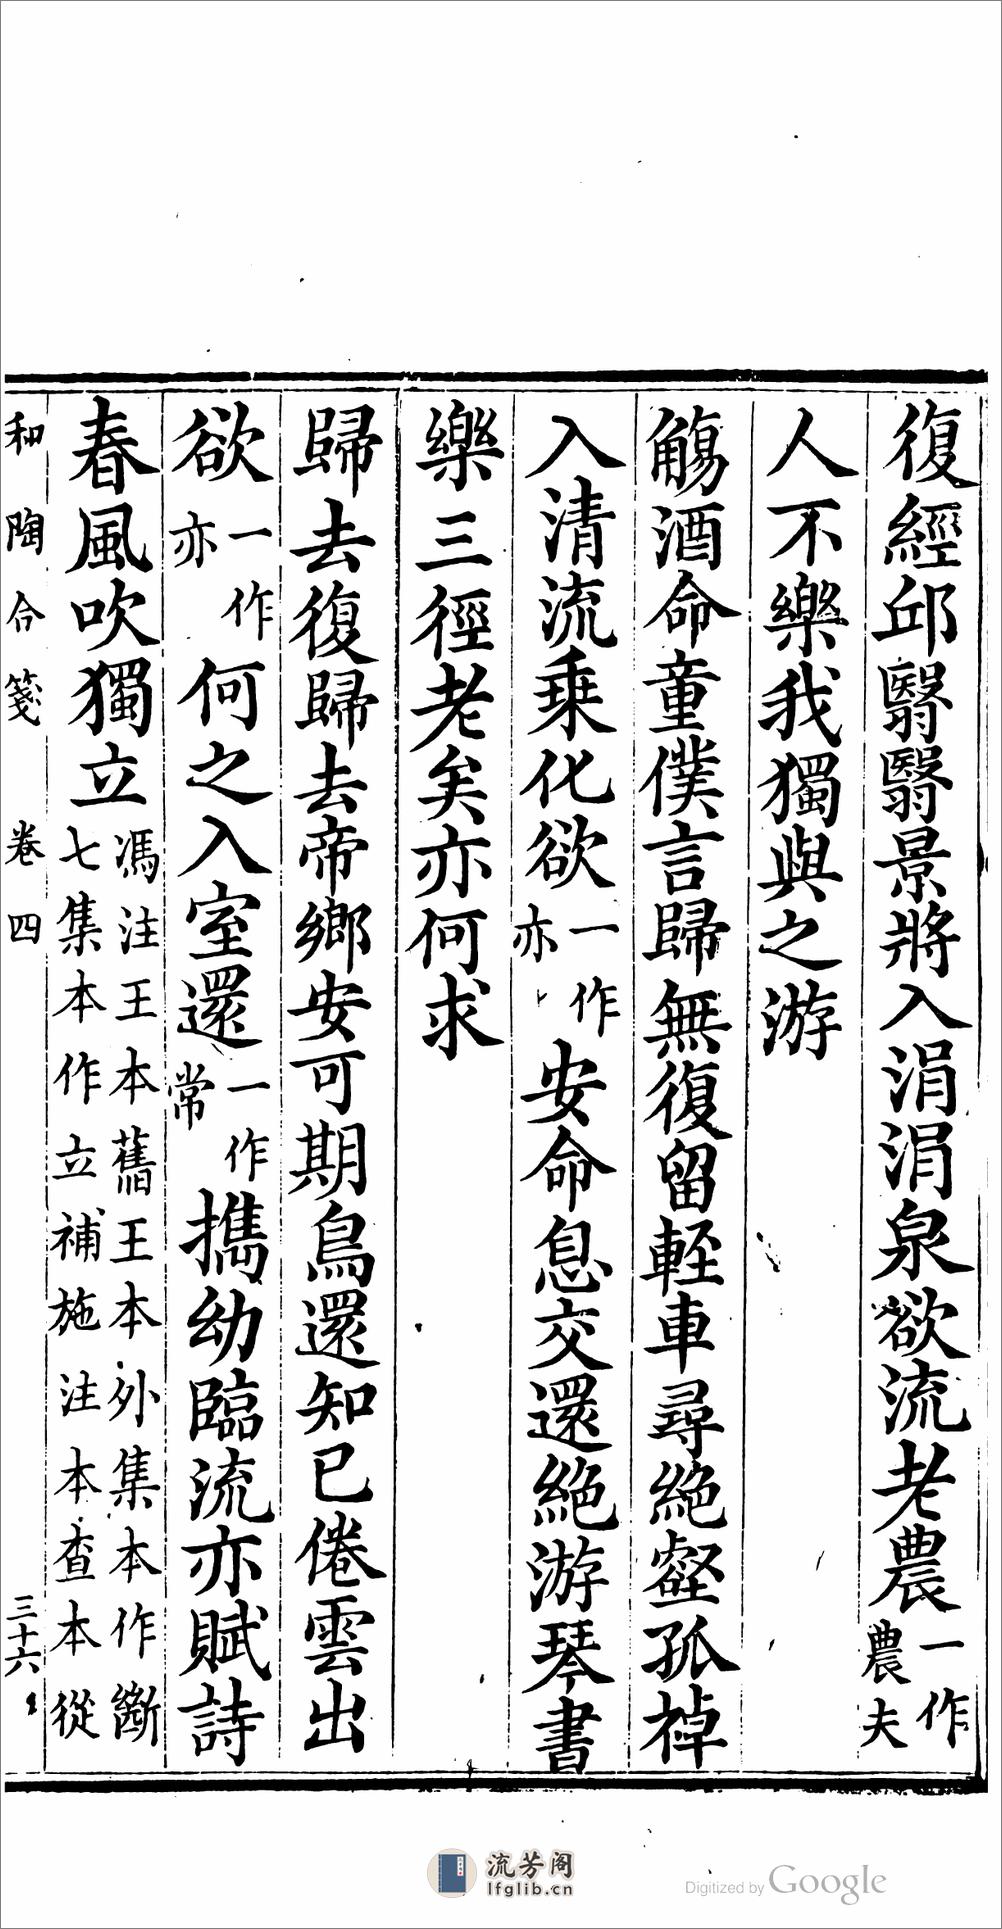 復經邱翳翳景將入涓涓泉欲流老農一作農夫
人不樂我獨與之游
觴酒命童僕言歸無復留輕車尋絕壑孤棹
入清流乘化欲一作亦安命息交還絕游琴書
樂三徑老矣亦何求
歸去復歸去帝鄉安可期鳥還知已倦雲出
欲一作亦何之入室還一作常攜幼臨流亦賦詩
春風吹獨立馮注王本舊王本外集本作斷
七集本作立補施注本查本從
和陶合箋 卷四 三十六
流芳阁
lfglib.cn
Digitized by Google